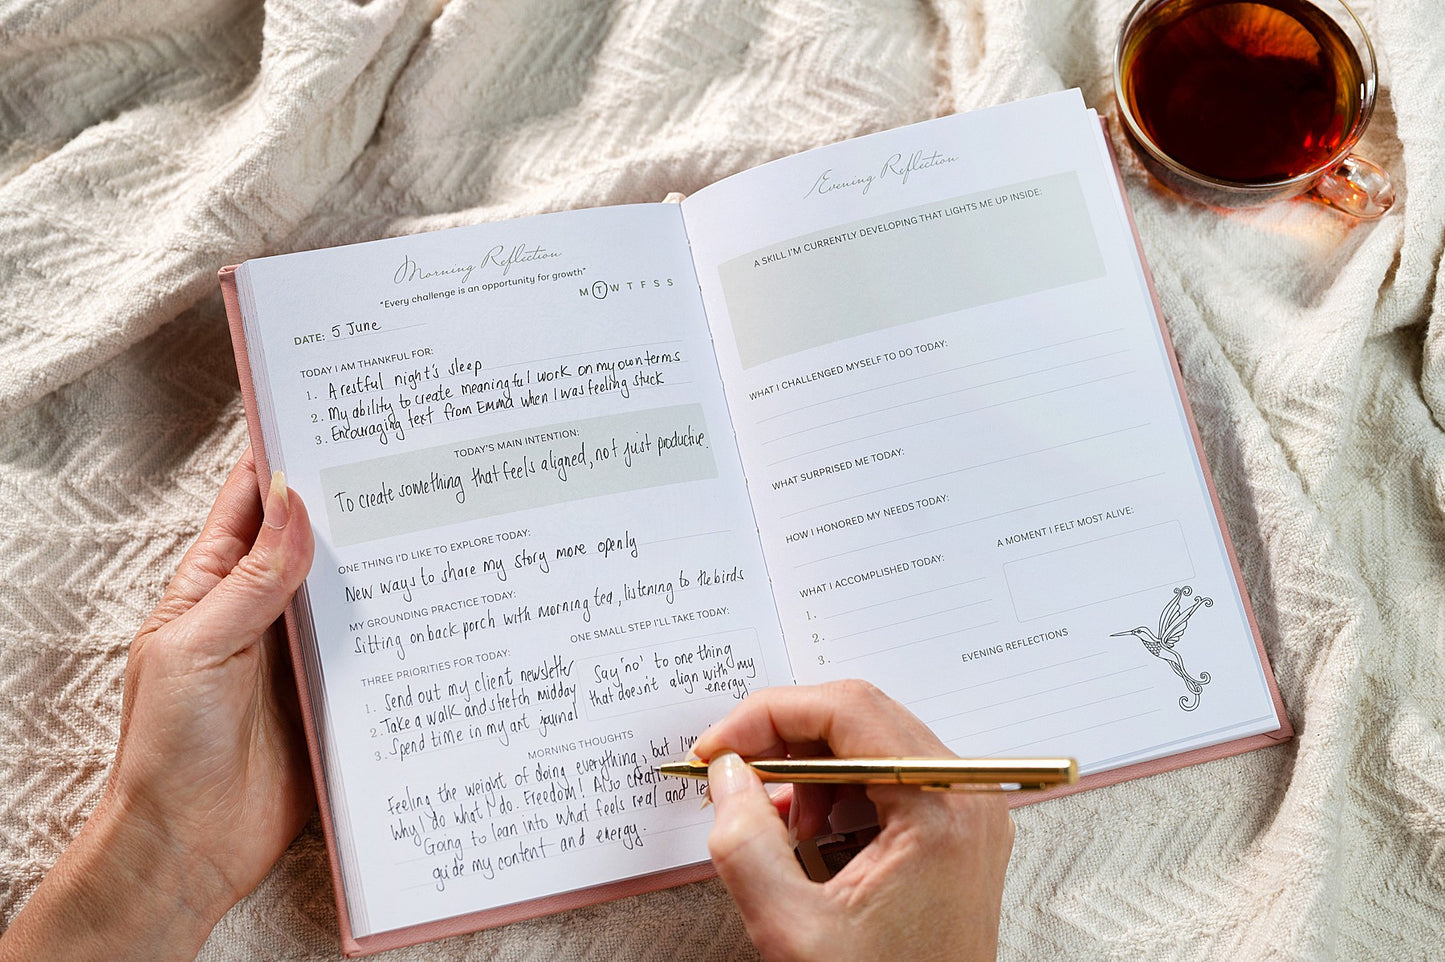 Morning Reflection
"Every challenge is an opportunity for growth"
M T W T F S S
DATE: 5 June
TODAY I AM THANKFUL FOR:
1. A restful night's sleep
2. My ability to create meaningful work on my own terms
3. Encouraging text from Emma when I was feeling stuck
TODAY'S MAIN INTENTION:
To create something that feels aligned, not just productive.
ONE THING I'D LIKE TO EXPLORE TODAY:
New ways to share my story more openly
MY GROUNDING PRACTICE TODAY:
Sitting on back porch with morning tea, listening to the birds
THREE PRIORITIES FOR TODAY:
1. Send out my client newsletter
2. Take a walk and stretch midday
3. Spend time in my art journal
ONE SMALL STEP I'LL TAKE TODAY:
Say 'no' to one thing
that doesn't align with my
energy
MORNING THOUGHTS
Feeling the weight of doing everything, but I'm
why I do what I do. Freedom! Also
Going to lean into what feels real and
guide my content and energy.
Evening Reflection
A SKILL I'M CURRENTLY DEVELOPING THAT LIGHTS ME UP INSIDE:
WHAT I CHALLENGED MYSELF TO DO TODAY:
WHAT SURPRISED ME TODAY:
HOW I HONORED MY NEEDS TODAY:
WHAT I ACCOMPLISHED TODAY:
1.
2.
3.
A MOMENT I FELT MOST ALIVE:
EVENING REFLECTIONS